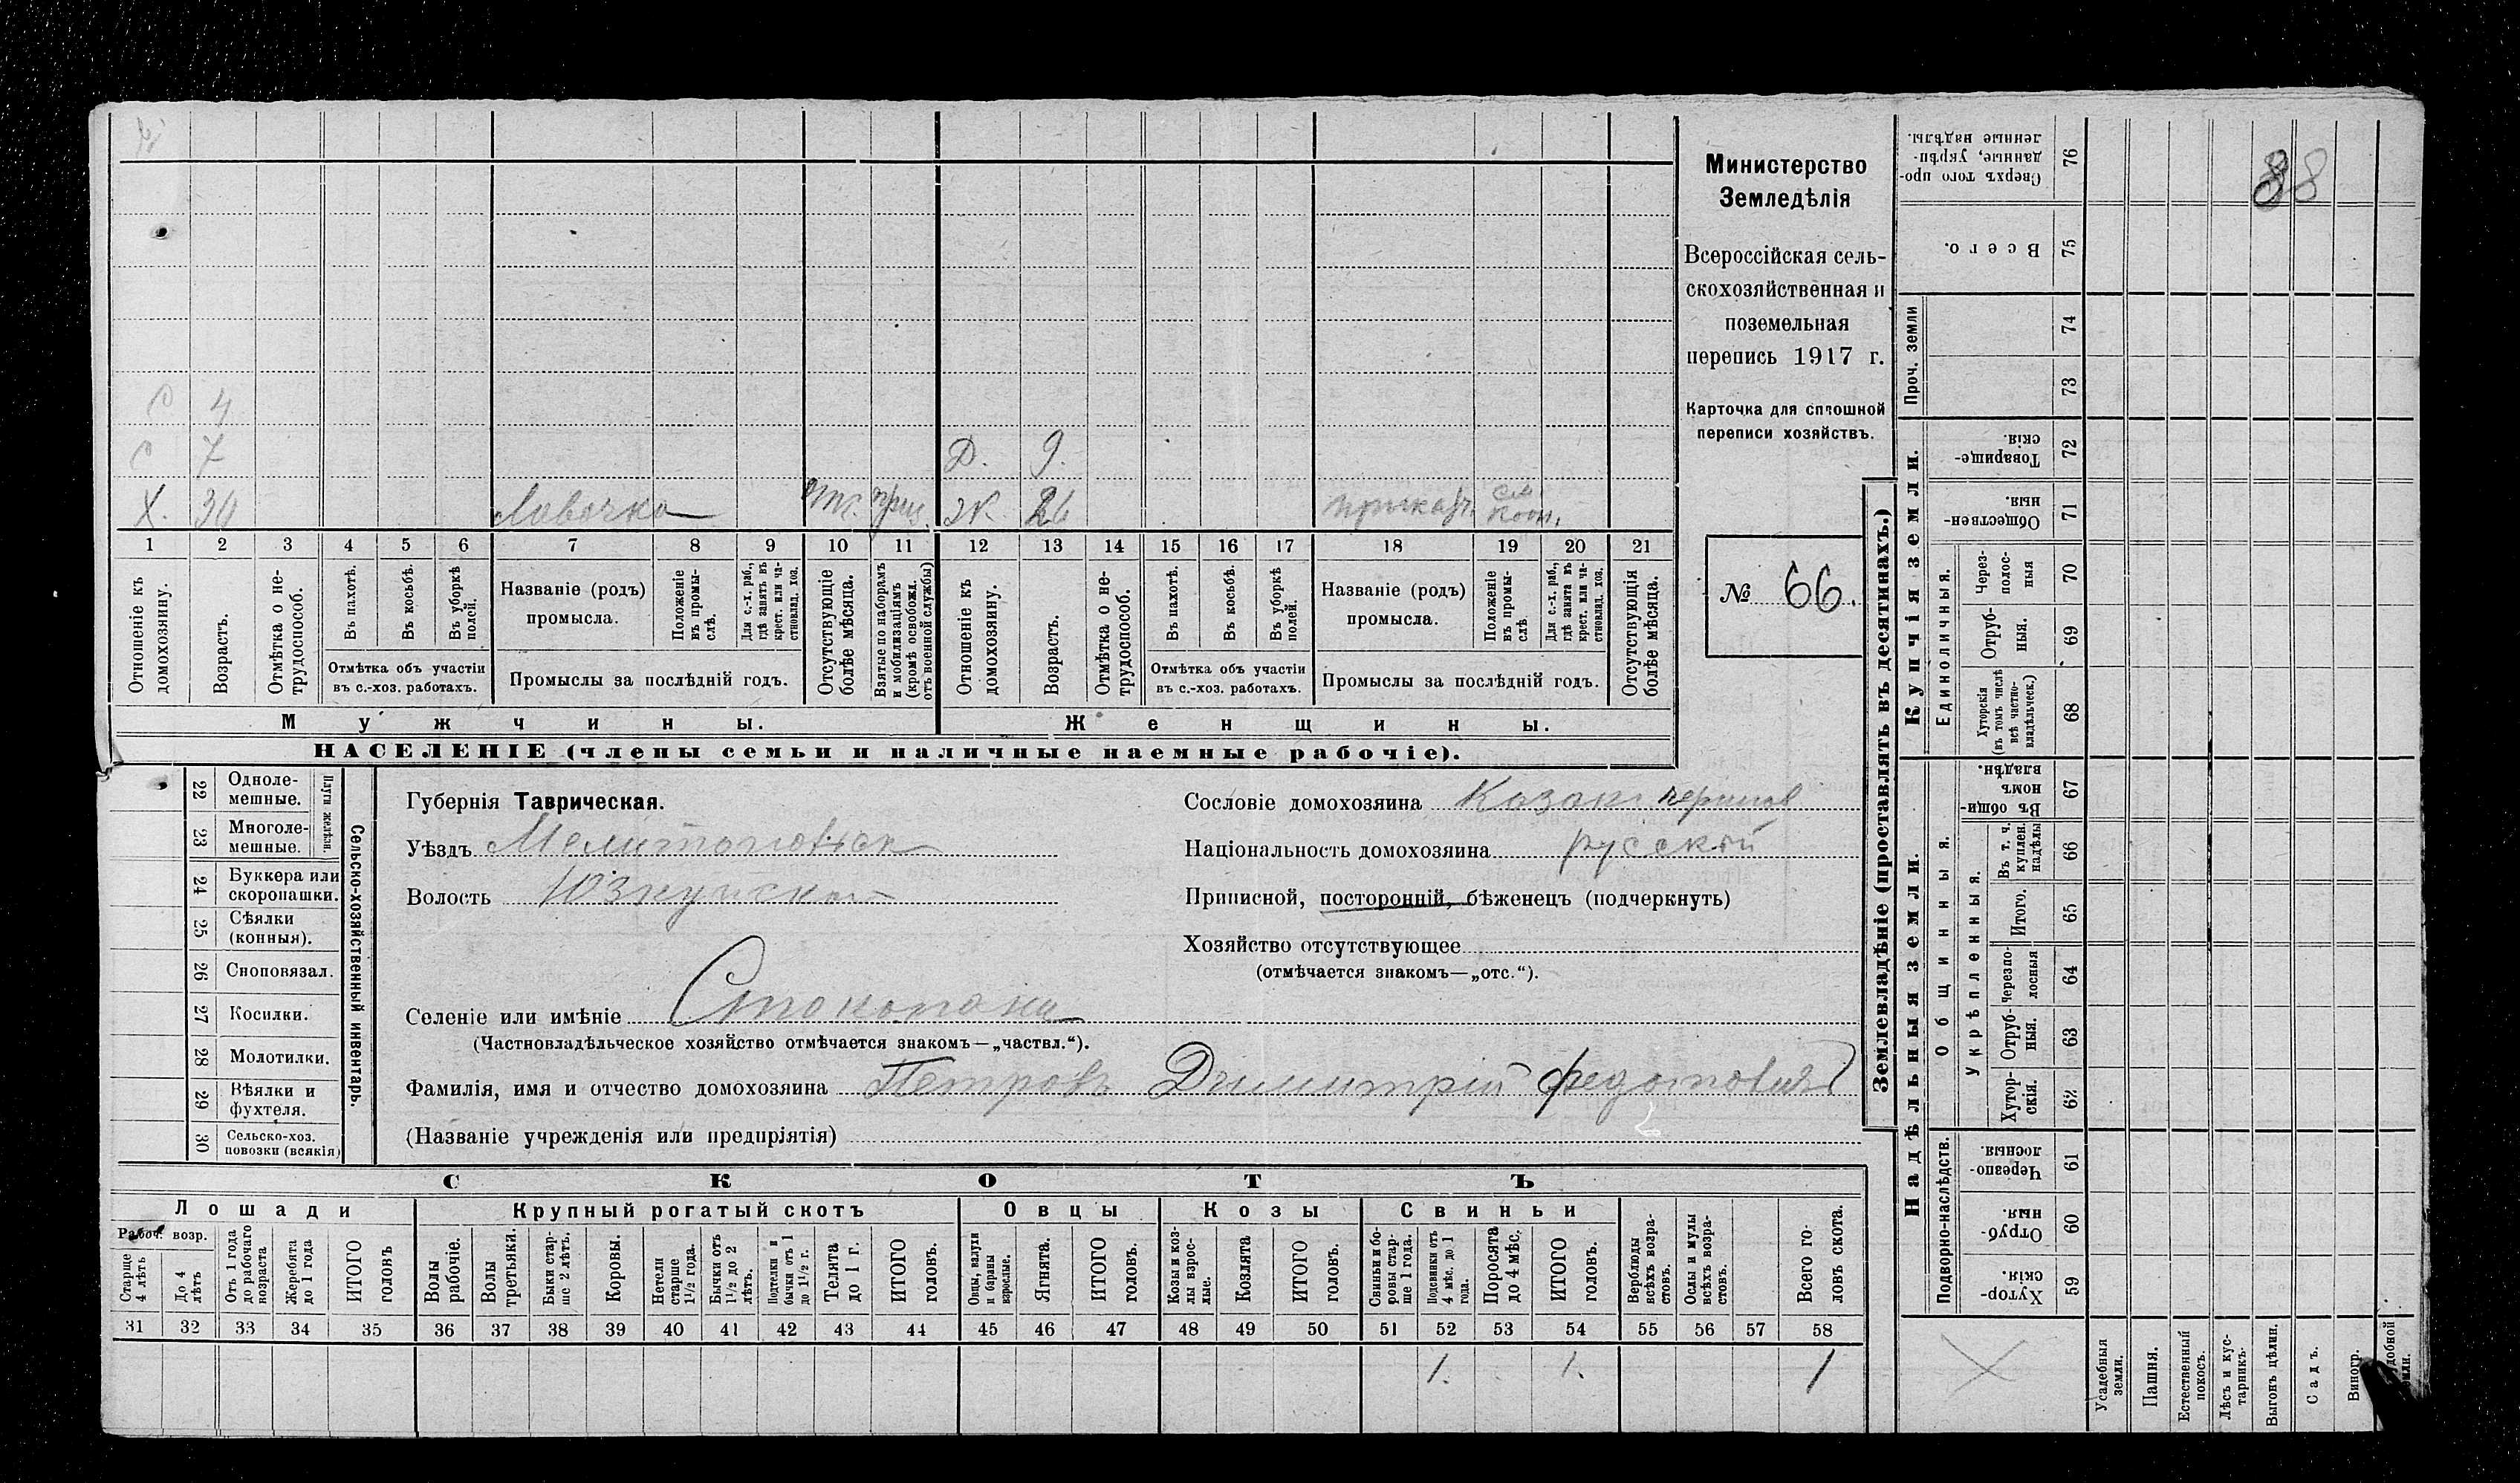 88
С 4
С 7 Д. 9.
Х. 30 Лавочка отс. приз. Ж. 26 приказч.
1 2 3 4 5 6 7 8 9 10 11 12 13 14 15 16 17 18 19 20 21
Отношеніе къ домохозяину.
Возрастъ.
Отмѣтка о не-
трудоспособ.
Въ пахотѣ.
Въ косьбѣ.
Въ уборкѣ
полей.
Отмѣтка объ участіи
въ с.-хоз. работахъ.
Названіе (родъ)
промысла.
Положеніе
въ промы-
слѣ.
Для с.-х. раб.,
гдѣ занятъ въ
крест. или ча-
стновлад. хоз.
Промыслы за послѣдній годъ.
Отсутствующіе
болѣе мѣсяца.
Взятые по наборамъ
и мобилизаціямъ
(кромѣ освобожд.
отъ военной службы)
Отношеніе къ
домохозяину.
Возрастъ.
Отмѣтка о не-
трудоспособ.
Въ пахотѣ.
Въ косьбѣ.
Въ уборкѣ
полей.
Отмѣтка объ участіи
въ с.-хоз. работахъ.
Названіе (родъ)
промысла.
Положеніе
въ промы-
слѣ.
Для с.-х. раб.,
гдѣ занята въ
крест. или ча-
стновлад. хоз.
Промыслы за послѣдній годъ.
Отсутствующія
болѣе мѣсяца.
Мужчины. Женщины.
НАСЕЛЕНІЕ (члены семьи и наличные наемные рабочіе).
Министерство
Земледѣлія
Всероссійская сель-
скохозяйственная и
поземельная
перепись 1917 г.
Карточка для сплошной
переписи хозяйствъ.
№ 66.
22 Одноле-
мешные.
23 Многоле-
мешные.
Плуги желѣзн.
24 Буккера или
скоропашки.
25 Сѣялки
(конныя).
26 Сноповязал.
27 Косилки.
28 Молотилки.
29 Вѣялки и
фухтеля.
30 Сельско-хоз.
повозки (всякія)
Сельско-хозяйственный инвентарь.
Губернія Таврическая.
Уѣздъ Мелитопольск
Волость Юзкуйская
Селеніе или имѣніе Стокопани
(Частновладѣльческое хозяйство отмѣчается знакомъ—„частвл.“).
Фамилія, имя и отчество домохозяина Петровъ Димитрій Федотовичъ
(Названіе учрежденія или предпріятія)
Сословіе домохозяина Казак
Національность домохозяина русскій
Приписной, посторонній, бѣженецъ (подчеркнуть)
Хозяйство отсутствующее
(отмѣчается знакомъ—„отс.“).
СКОТЪ
Лошади Крупный рогатый скотъ Овцы Козы Свиньи
Рабоч. возр.
Старще
4 лѣтъ
До 4
лѣтъ
Отъ 1 года
до рабочаго
возраста
Жеребята
до 1 года
ИТОГО
головъ
Волы
рабочіе.
Волы
третьяки.
Быки стар-
ше 2 лѣтъ.
Коровы.
Нетели
старше
1½ года.
Бычки отъ
1½ до 2
лѣтъ.
Подтелки и
бычки отъ 1
до 1½ г.
Телята
до 1 г.
ИТОГО
головъ.
Овцы, валухи
и бараны
взрослые.
Ягнята.
ИТОГО
головъ.
Козы и коз-
лы взрос-
лые.
Козлята
ИТОГО
головъ.
Свиньи и бо-
ровы стар-
ше 1 года.
Подсвинки отъ
4 мѣс. до 1
года.
Поросята
до 4 мѣс.
ИТОГО
головъ.
Верблюды
всѣхъ возра-
стовъ.
Ослы и мулы
всѣхъ возра-
стовъ.
Всего го-
ловъ скота.
31 32 33 34 35 36 37 38 39 40 41 42 43 44 45 46 47 48 49 50 51 52 53 54 55 56 57 58
1. 1. 1
Землевладѣніе (проставлять въ десятинахъ.)
Купчія земли.
Надѣльныя земли.
Проч. земли
Единоличныя.
Общинныя.
Укрѣпленныя.
Подворно-наслѣдств.
Сверхъ того про-
данные, укрѣп-
ленные надѣлы. 76
Всего. 75
74
73
Товарище-
скія. 72
Обществен-
ныя. 71
Через-
полос-
ныя 70
Отруб-
ныя. 69
Хуторскія
(въ томъ числѣ
всѣ частно-
владѣльческ.) 68
Въ общи-
номъ
владѣн. 67
Въ т. ч.
куплен.
надѣлы 66
Итого. 65
Черезпо-
лосныя 64
Отруб-
ныя. 63
Хутор-
скія. 62
Черезпо-
лосныя. 61
Отруб-
ныя. 60
Хутор-
скія. 59
Усадебныя
земли.
Пашня.
Естественный
покосъ.
Лѣсъ и кус-
тарникъ.
Выгонъ цѣлин.
Садъ.
Виногр.